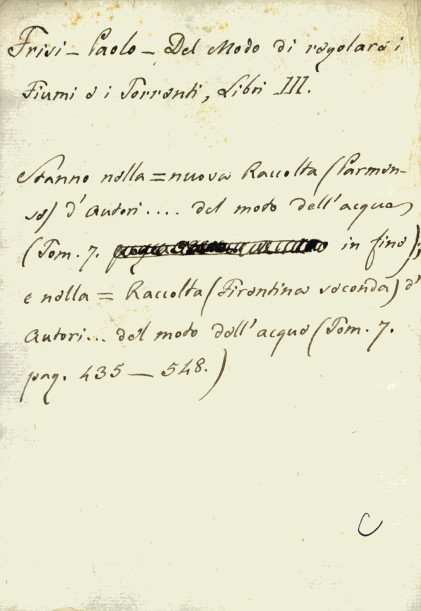 Frisi - Paolo - Del Modo di regolare i
Fiumi e i Torrenti, Libri III.
Stanno nella = nuova Raccolta (Parmen-
se) d'Autori.... del moto dell'acque
(Tom. 7. in fine);
e nella = Raccolta (Fiorentina seconda) d'
Autori... del moto dell'acque (Tom. 7.
pag. 435 — 548.)
C